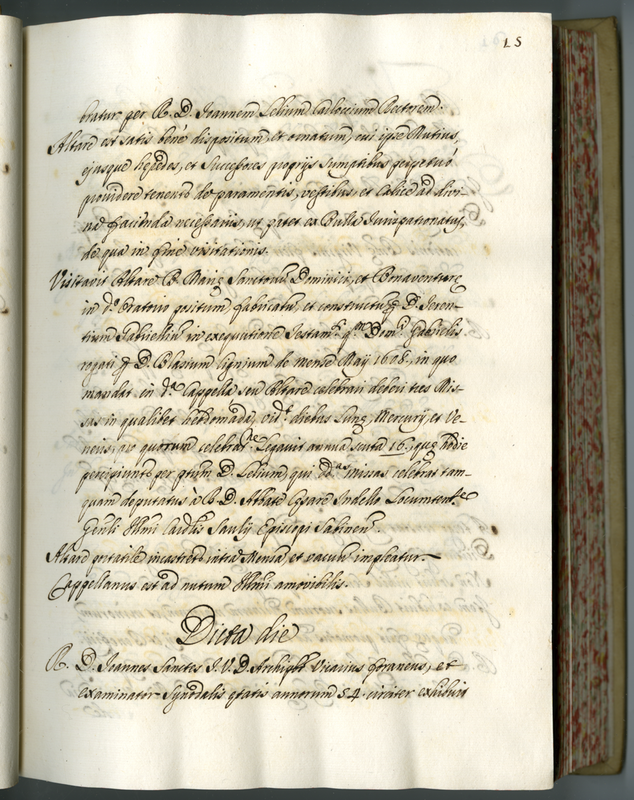 15
bratur per R. D. Joannem Lelium Calloccium Rectorem.
Altare est satis bene dispositum, et ornatum, cui ipse Mutius,
ejusque heredes, et successores proprijs sumptibus perpetuo
providere tenent.r de paramentis, vestibus, et calice ad divi-
na facienda necessarijs, ut patet ex Bulla Jurispatronatus,
de qua in fine visitationis.
Visitavit Altare B. Mariæ Sanctorũ Dominici, et Bonaventuræ
in d.o Oratorio positum fabricatũ, et constructũ per D. Teren-
tium in executione Testam.ti q.m Dom.ci Gabrielis
rogati per D. Blasium de mense Maij 1608, in quo
mandat in d.a Cappella, seu Altare celebrari debere tres Mis-
sas in qualibet hebdomada, vid.t diebus Lunæ, Mercurij, et Ve-
neris, pro quorum celebrat.ne legavit annua scuta 16, quæ hodie
percipiunt.r per p.tum D. Lelium, qui d.as missas celebrat tam-
quam deputatus à R. D. Abbate Cesare Indello Locumten.te
Gen̄li Ill̄mi Card.lis Saulij Episcopi Sabinen.
Altare portatile incastret.r intra Mensã et vacuũ impleatur.
Cappellanus est ad nutum Ill̄mi amovibilis.
Dicta die
R. D. Joannes Sanctes J. V. D. Archip̄br Vicarius foraneus, et
examinator Synodalis ætatis annorum 54 circiter exhibuit